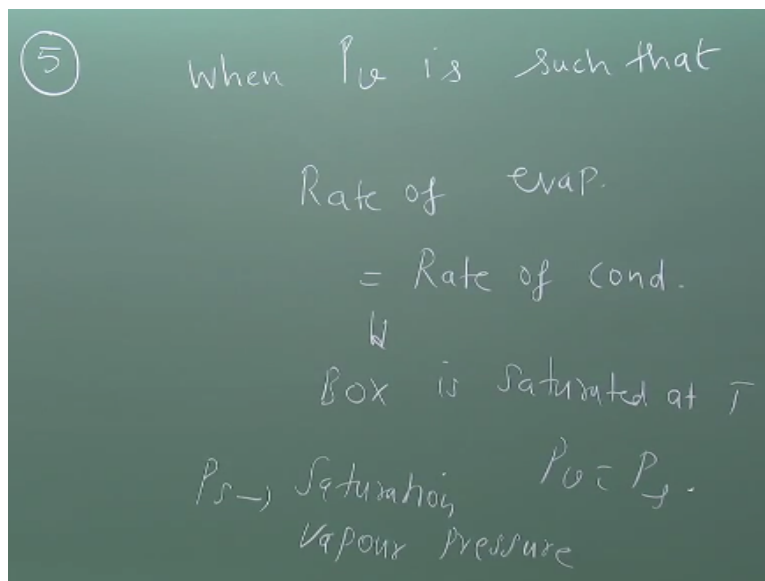 5 When Pv is such that
Rate of evap.
= Rate of cond.
⇓
Box is saturated at T
Pv = Ps.
Ps → Saturation
Vapour pressure